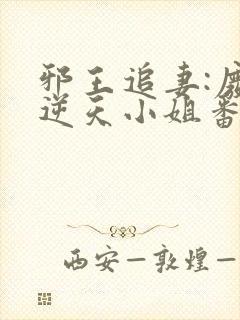 邪王追妻:废
逆天小姐番
西安—敦煌—